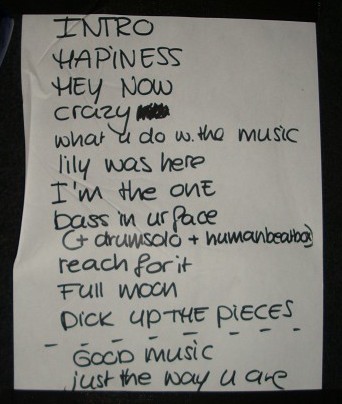 INTRO
HAPINESS
HEY NOW
crazy
what u do w. the music
lily was here
I'm the onE
bass in ur face
(+ drumsolo + humanbeatbox)
reach for it
FULL MOON
DICK UP THE PIECES
GOOD MUSIC
just the way u are